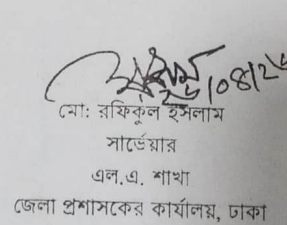 মো: রফিকুল ইসলাম
সার্ভেয়ার
এল.এ. শাখা
জেলা প্রশাসকের কার্যালয়, ঢাকা